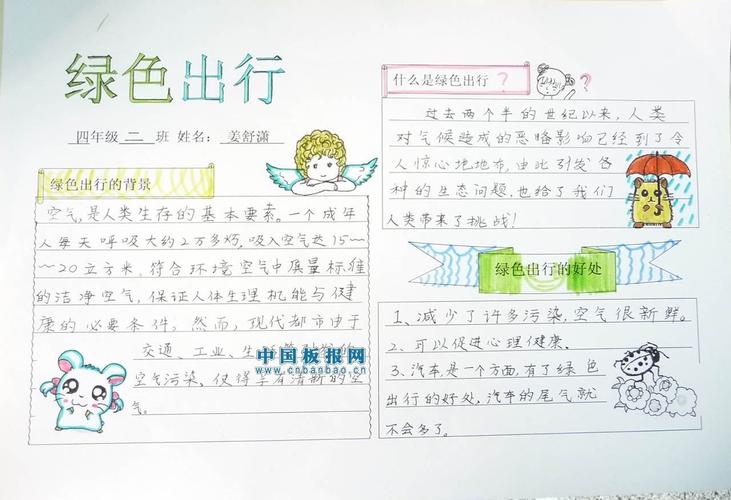 绿色出行
四年级 二 班 姓名: 姜舒潇
绿色出行的背景
空气,是人类生存的基本要素。一个成年
人每天呼吸大约2万多次,吸入空气达15~
~20立方米。符合环境空气中质量标准
的洁净空气,保证人体生理机能与健
康的必要条件。然而,现代都市由于
交通、工业、生
空气污染,使得享有清新的空
气。
中国板报网
www.cnbanbao.cn
什么是绿色出行?
?
过去两个半的世纪以来,人类
对气候造成的恶略影响已经到了令
人惊心地地布,由此引发各
种的生态问题,也给了我们
人类带来了挑战!
绿色出行的好处
1、减少了许多污染,空气很新鲜。
2、可以促进心理健康。
3、汽车是一个方面,有了绿色
出行的好处,汽车的尾气就
不会多了。